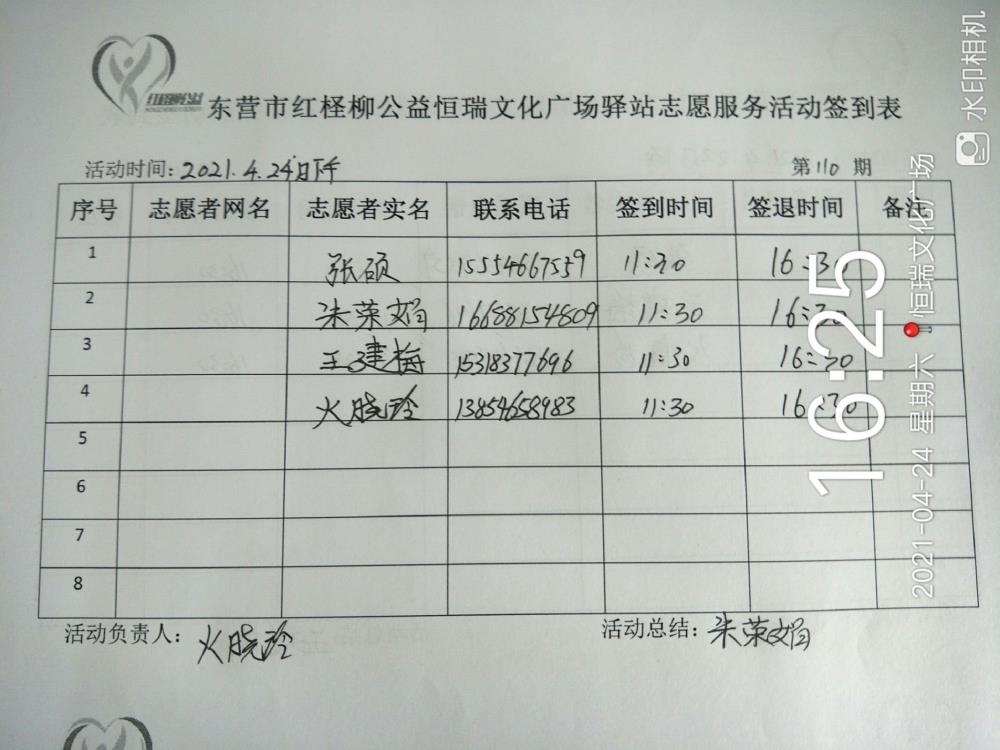 红柽柳公益
东营市红柽柳公益恒瑞文化广场驿站志愿服务活动签到表
活动时间: 2021.4.24日下午
第110期
序号 志愿者网名 志愿者实名 联系电话 签到时间 签退时间 备注
1 张硕 15554667559 11:30 16:30
2 朱荣娟 16688154809 11:30 16:30
3 王建梅 15318377696 11:30 16:30
4 火晓玲 13854658983 11:30 16:30
5
6
7
8
活动负责人: 火晓玲
活动总结: 朱荣娟
16:25
2021-04-24 星期六 恒瑞文化广场
水印相机